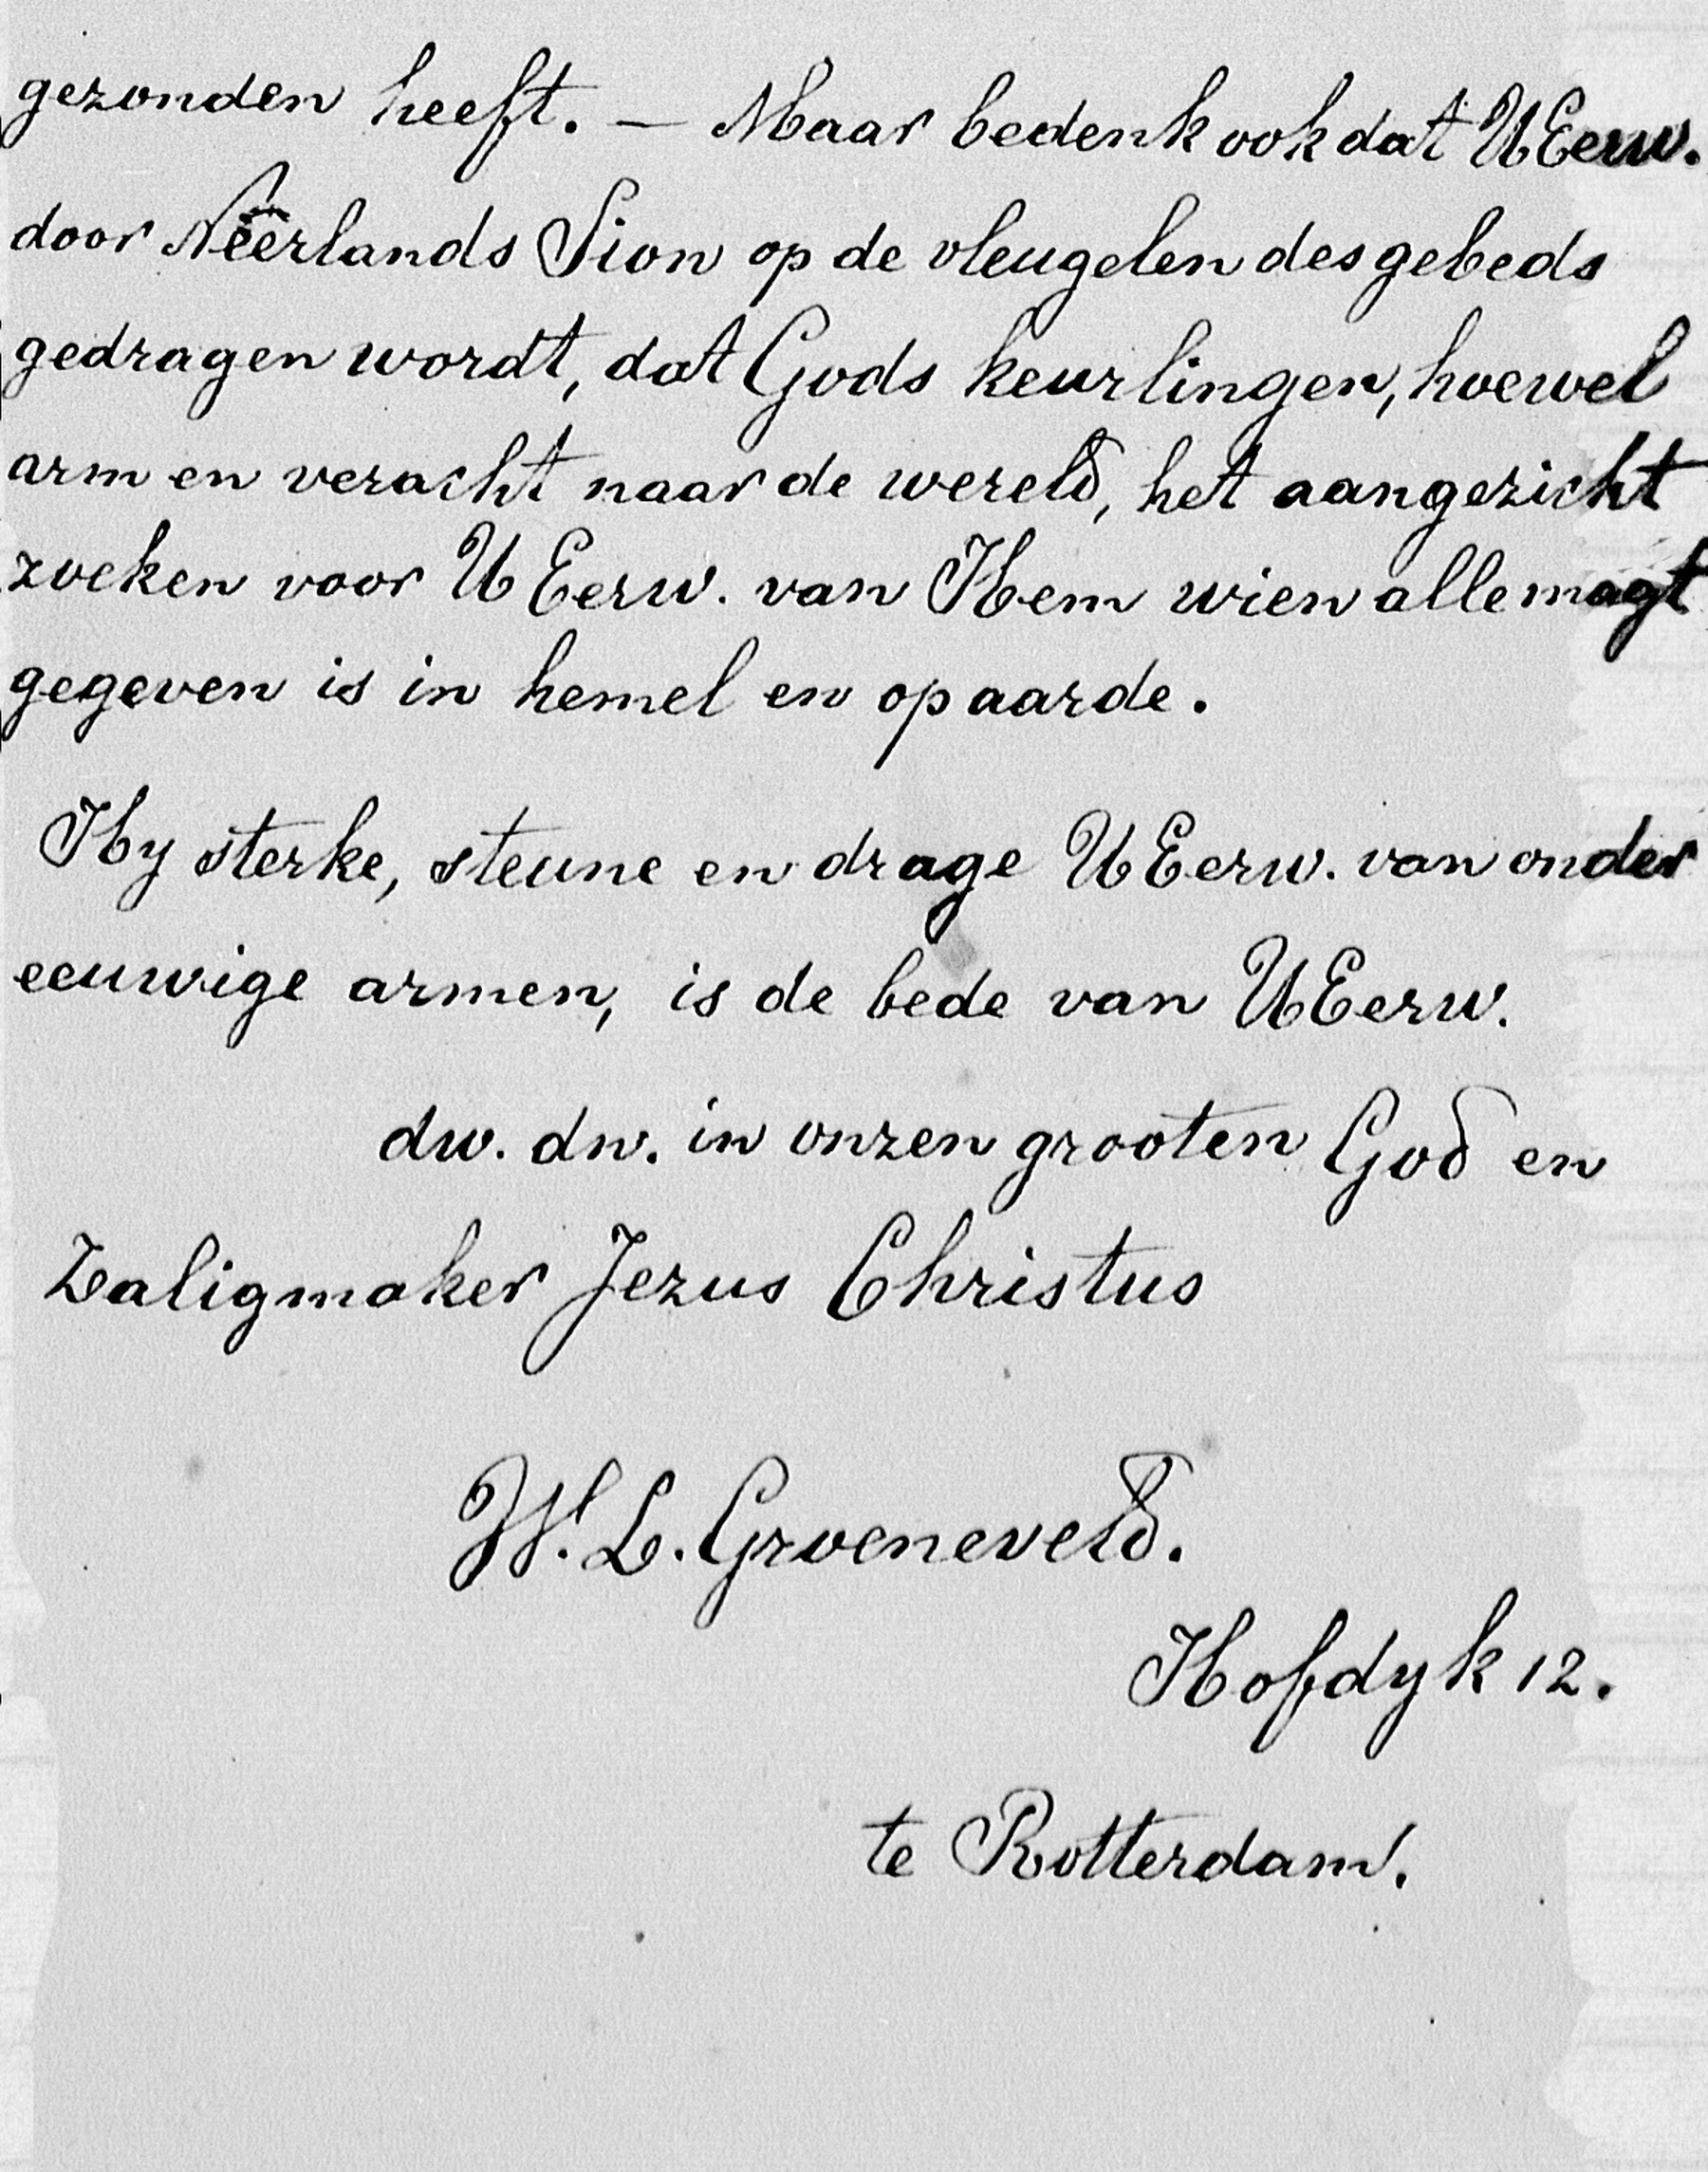 gezonden heeft. — Maar bedenk ook dat UEerw.
door Neêrlands Sion op de vleugelen des gebeds
gedragen wordt, dat Gods keurlingen, hoewel
arm en veracht naar de wereld, het aangezicht
zoeken voor UEerw. van Hem wien alle magt
gegeven is in hemel en op aarde.
Hy sterke, steune en drage UEerw. van onder
eeuwige armen, is de bede van UEerw.
dw. dn. in onzen grooten God en
Zaligmaker Jezus Christus
W. L. Groeneveld.
Hofdyk 12.
te Rotterdam.